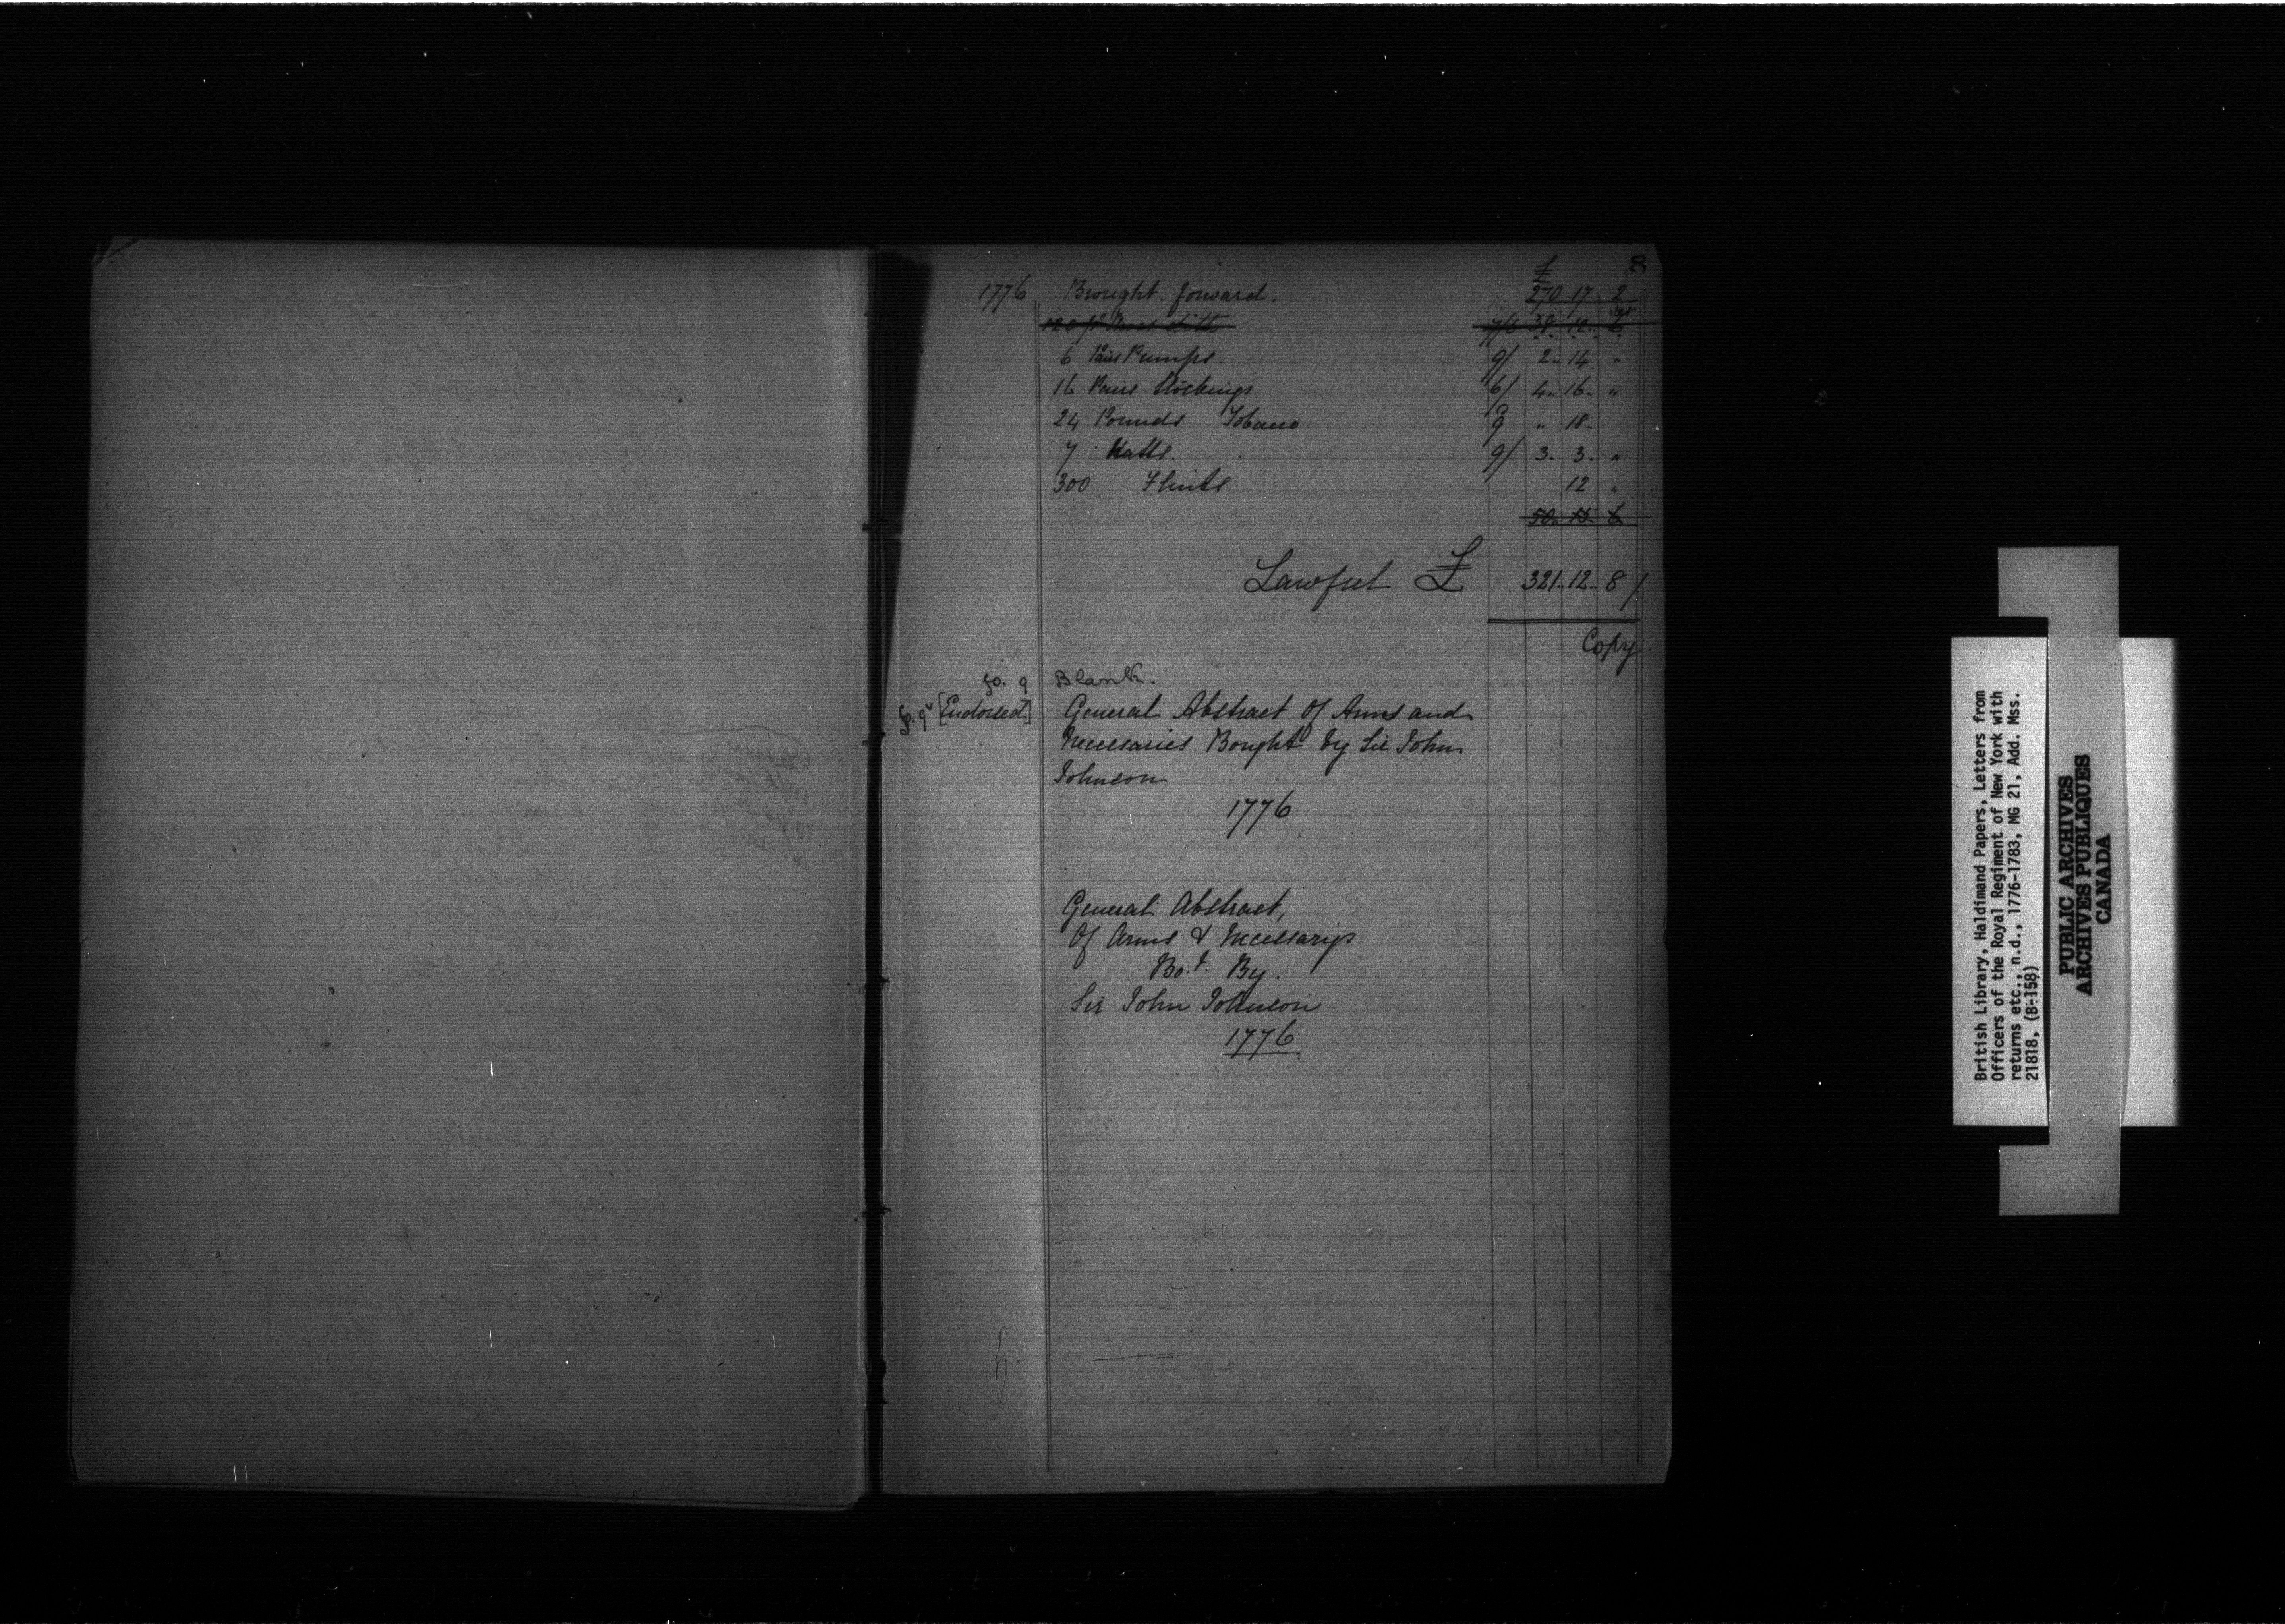 8
£
1776 Brought forward. 270 17 2
6 Pair Pumps. 9/ 2.. 14 "
16 Pairs Stockings 6/ 4.. 16.. "
24 Pounds Tobacco 9 " 18..
7 Hatts. 9/ 3. 3. "
300 Flints 12 "
50.. 15 6
Lawful £ 321.. 12.. 8/
Copy.
fo. 9 Blank.
fo. 9v [Endorsed] General Abstract Of Arms and
Necessaries Bought by Sir John
Johnson
1776
General Abstract,
Of Arms & Necessarys
Bo.t By.
Sir John Johnson
1776
British Library, Haldimand Papers, Letters from
Officers of the Royal Regiment of New York with
returns etc., n.d., 1776-1783, MG 21, Add. Mss.
21818, (B-158)
PUBLIC ARCHIVES
ARCHIVES PUBLIQUES
CANADA